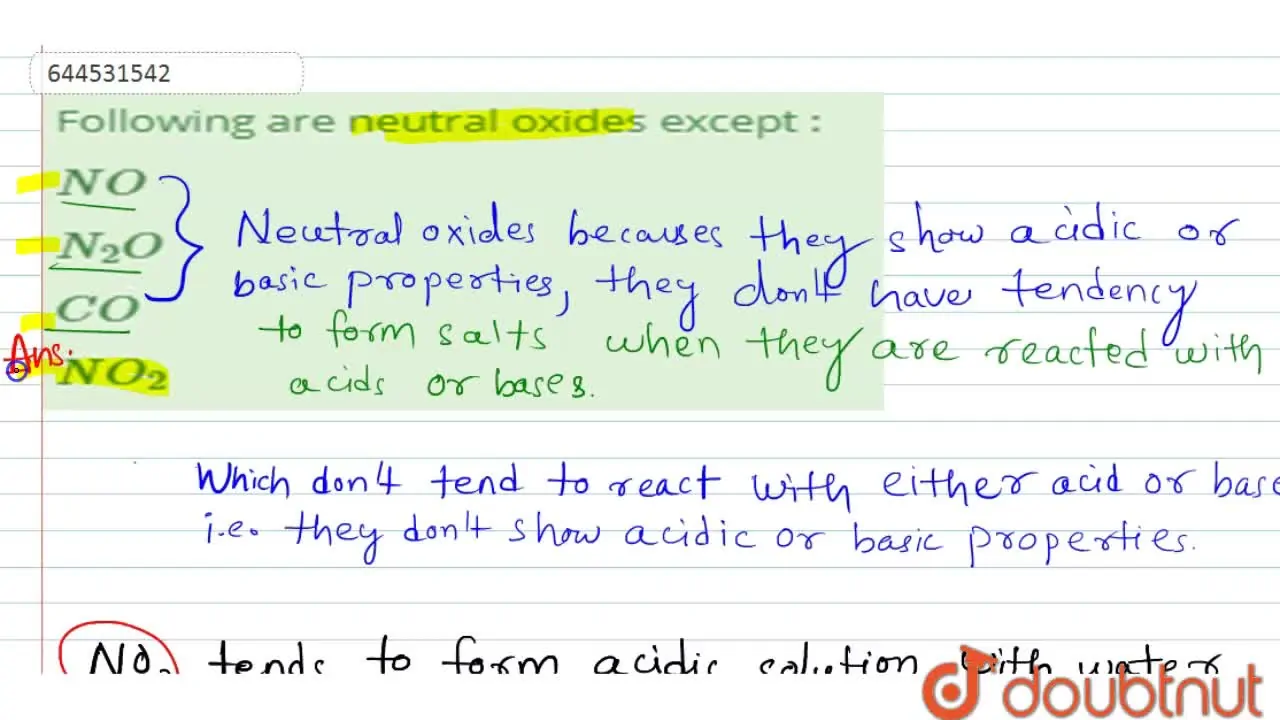 644531542
Following are neutral oxides except :
NO
N₂O
CO
Ans.
NO₂
Neutral oxides becauses they show acidic or
basic properties, they don't have tendency
to form salts when they are reacted with
acids or bases.
Which don't tend to react with either acid or base
i.e. they don't show acidic or basic properties.
NO₂ tends to form acidic solution with water
doubtnut